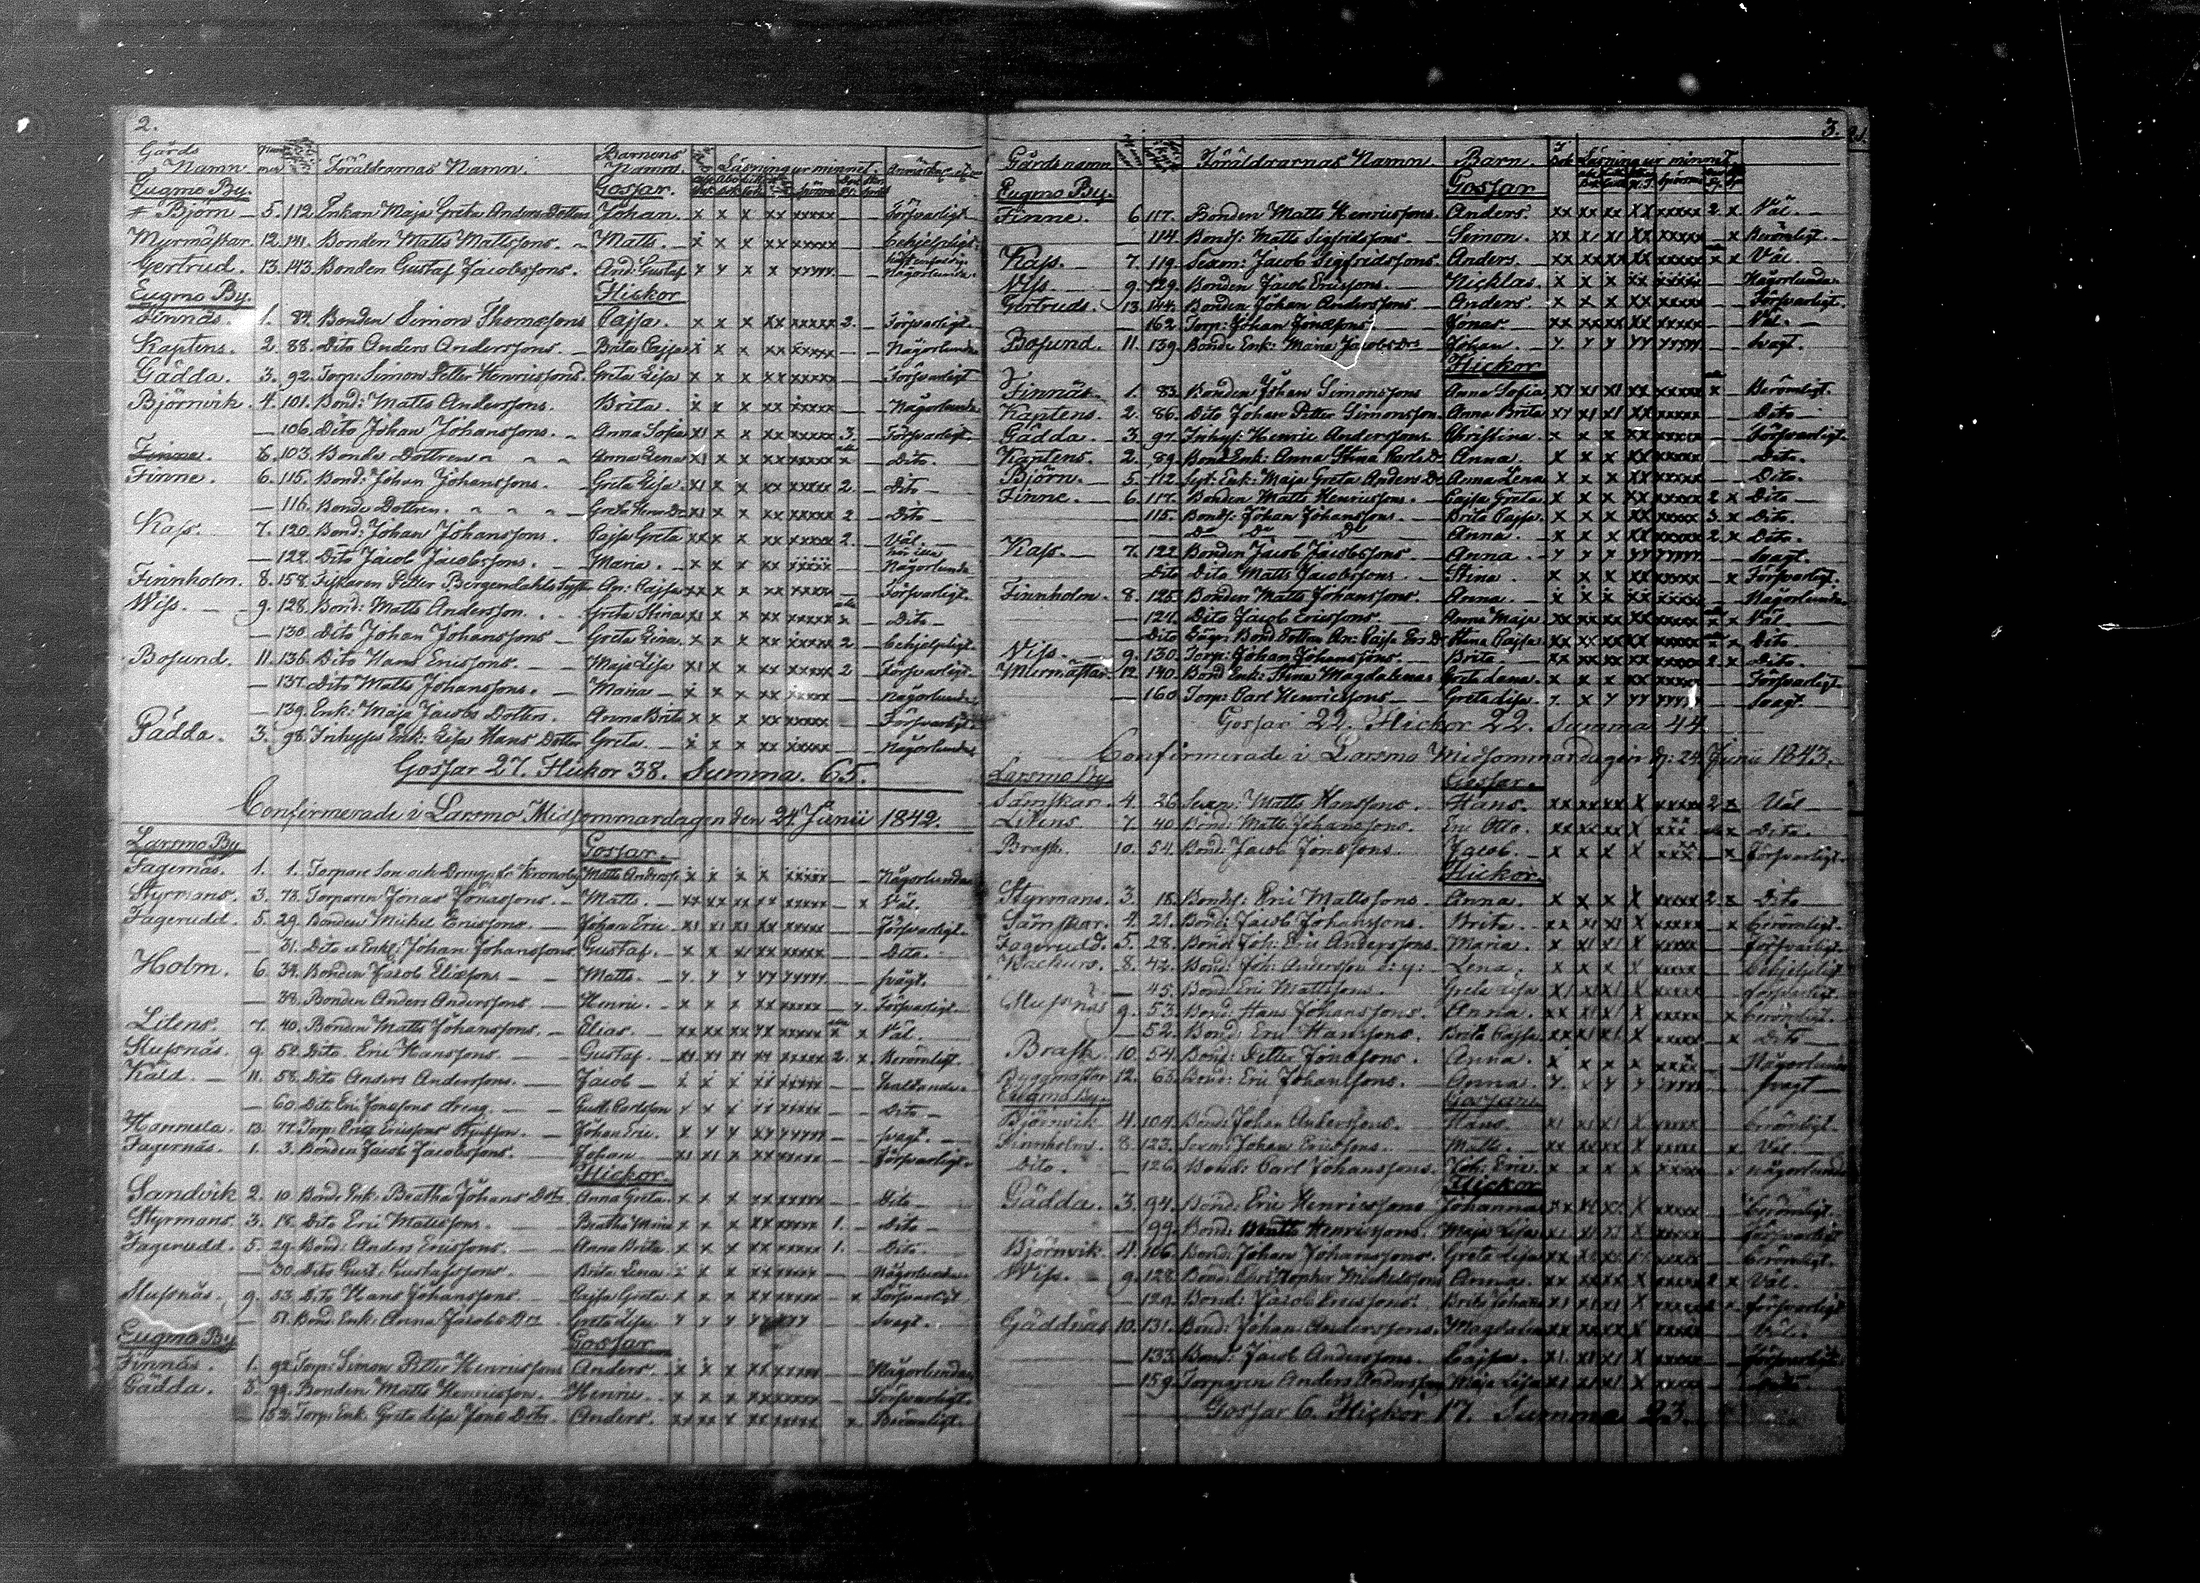 2.
Gårds Namn Föräldrarnas Namn. Barnens Namn. Läsning ur minnet.
Eugmo By. Gossar.
+ Björn 5. 112. Enkan Maja Greta Anders Dotters Johan. x x x xx xxxxx Försvarligt
Myrmästar 12. 141. Bonden Matts Mattssons. Matts. x x x xx xxxxx behjelpligt
Gertrud. 13. 143. Bonden Gustaf Jacobssons. And: Gustaf y y x x yyyyy Någorlunda
Eugmo By. Flickor
Finnäs. 1. 84. Bonden Simon Thomæsons Cajsa. x x x xx xxxxx 2. Försvarligt.
Kaptens. 2. 88. Dito Anders Anderssons. Brita Cajsa x x x xx xxxxx Någorlunda
Gädda. 3. 92. Torp: Simon Petter Henricssons. Greta Lisa x x x xx xxxxx Försvarligt
Björnvik. 4. 101. Bond: Matts Anderssons. Brita. x x x xx xxxxx Någorlunda
106. Dito Johan Johanssons. Anna Sofia xx x x xx xxxxx 3. Försvarligt.
Finne. 6. 103. Bonde Dottren Anna Lena xx x x xx xxxxx x Dito.
Finne. 6. 115. Bond: Johan Johanssons. Greta Lisa xx x x xx xxxxx 2 Dito
116. Bonde Dottren. xx x x xx xxxxx 2 Dito
Kass. 7. 120. Bond: Johan Johanssons. Cajsa Greta xx x x xx xxxxx 2. Väl.
122. Dito Jacob Jacobssons. Maria. x x x xx xxxxx Någorlunda
Finnholm. 8. 158. Fiskaren Petter Bergendahls An: Cajsa xx x x xx xxxxx Försvarligt.
Wiss. 9. 128. Bond: Matts Andersson. Greta Stina xx x x xx xxxxx x Dito.
130. Dito Johan Johanssons Greta Lina. x x x xx xxxxx 2 behjelpligt
Bosund. 11. 136. Dito Hans Ericssons. Maja Lisa xx x x xx xxxxx 2 Försvarligt.
137. Dito Matts Johanssons. Maria x x x xx xxxxx Någorlunda
139. Enk: Maja Jacobs Dotters. Anna Brita x x x xx xxxxx Försvarligt.
Gädda. 3. 98. Inhyses Enk: Lisa Hans Dotter Greta. x x x xx xxxxx Någorlunda
Gossar 27. Flickor 38. Summa. 65.
Confirmerade i Larsmo Midsommardagen den 24 Junii 1842.
Larsmo By Gossar.
Fagernäs. 1. 1. Torpare Son och Dreng fr: Kronoby Matts Anderss: x x x x xxxxx Någorlunda
Styrmans. 3. 73. Torparen Jonas Jonssons. Matts. xx xx xx xx xxxxx x Väl.
Fagerudd. 5. 29. Bonden Mickel Ericssons. Johan Eric xx xx xx xx xxxxx Försvarligt.
31. Dito o Enkl: Johan Johanssons Gustaf. x x xx xx xxxxx Dito.
Holm. 6. 34. Bonden Jacob Eliæsons Matts. y y y yy yyyyy svagt.
38. Bonden Anders Anderssons Henric. x x x xx xxxxx x Försvarligt
Litens. 7. 40. Bonden Matts Johanssons. Elias. xx xx xx xx xxxxx x x Väl.
Slussnäs. 9. 52. Dito Eric Hanssons. Gustaf. xx xx xx xx xxxxx 2. x Berömligt.
Kald. 11. 58. Dito Anders Anderssons. Jacob x x x xx xxxxx haltande.
60. Dito Eric Jonssons dreng. Gust: Carlsson x x x xx xxxxx Dito
Hannula. 13. 77. Torp: Eric Ericssons Johan Eric. x y y xy yyyyy svagt.
Fagernäs. 1. 3. Bonden Jacob Jacobssons. Johan xx xx x xx xxxxx Försvarligt.
Flickor.
Sandvik 2. 10. Bond: Enk: Beatha Johans Dotr Anna Greta. x x x xx xxxxx Dito
Styrmans. 3. 18. Dito Eric Mattssons. Beatha Maria x x x xx xxxxx 1. Dito
Fagerudd. 5. 29. Bond: Anders Ericssons. Anna Brita x x x xx xxxxx 1. Dito.
30. Dito Gust: Gustafssons. Brita Lena x x x xx xxxxx Någorlunda.
Slussnäs. 9. 53. Dito Hans Johanssons. Cajsa Greta x x x xx xxxxx x Försvarligt
57. Bond: Enk: Anna Jacobs Dtr Greta Lisa y y y yy yyy Svagt.
Eugmo By Gossar
Finnäs. 1. 92. Torp: Simon Petter Henricssons Anders. x x x xx xxxxx Någorlunda
Gädda. 3. 99. Bonden Matts Henricsson. Henric. x x x xx xxxxx Försvarligt.
153. Torp: Enk: Greta Lisa Jons Dotr. Anders. xx xx x xx xxxxx x Berömligt.
3.
Gårds namn Föräldrarnas Namn Barn. Läsning ur minnet
Eugmo By. Gossar
Finne. 6. 117. Bonden Matts Henricssons. Anders. xx xx xx xx xxxxx 2 x Väl.
114. Bond: Matts Sigfridssons. Simon. xx xx xx xx xxxxx x Berömligt.
Kass. 7. 119. Sexm: Jacob Sigfridssons Anders. xx xx xx xx xxxxx x x Väl
Wiss. 9. 129. Bonden Jacob Ericssons. Nicklas. x x x xx xxxxx Någorlunda
Gertruds. 13. 144. Bonden Johan Anderssons Anders. x x x xx xxxxx Försvarligt.
162. Torp: Johan Jonæsons Jonas. xx xx xx xx xxxxx Väl.
Bosund. 11. 139. Bonde Enk: Maria Jacobs Dr Johan. y y y yy yyyyy Svagt.
Flickor
Finnäs. 1. 83. Bonden Johan Simonssons Anna Sofia xx xx xx xx xxxxx x Berömligt.
Kaptens. 2. 86. Dito Johan Petter Simonsson. Anna Brita xx xx xx xx xxxxx Dito
Gädda. 3. 97. Inhys: Henric Anderssons Christina x x x xx xxxxx Försvarligt.
Kaptens. 2. 89. Bond: Enk: Anna Stina Karls Dr. Anna. x x x xx xxxxx Dito.
Björn. 5. 112. Enk: Maja Greta Anders Dr Anna Lena x x x xx xxxxx Dito.
Finne. 6. 117. Bonden Matts Henricssons. Cajsa Greta x x x xx xxxxx 2 x Dito
115. Bond: Johan Johanssons. Brita Cajsa. x x x xx xxxxx 3. x Dito.
Do Do Do Anna. x x x xx xxxxx 2 x Dito.
Kass. 7. 122. Bonden Jacob Jacobssons. Anna y y y yy yyyyy Svagt.
Dito Dito Matts Jacobssons Stina. x x x xx xxxxx x Försvarligt.
Finnholm. 8. 125. Bonden Matts Johanssons. Anna. x x x xx xxxxx Någorlunda.
124. Dito Jacob Ericssons. Anna Maja xx xx xx xx xxxxx x x Väl.
Dito Bond: Dottren An: Cajsa Ers Dr Stina Cajsa xx xx xx xx xxxxx x x Dito
Wiss. 9. 130. Torp: Johan Johanssons. Brita xx xx xx xx xxxxx 2 x Dito.
Murmästar 12. 140. Bond: Enk: Stina Magdalenas Greta Lena. x x x xx xxxxx Försvarligt.
160. Torp: Carl Henricssons Greta Lisa y. x y yy yyyyy Svagt.
Gossar 22. Flickor 22. Summa 44
Confirmerade i Larsmo Midsommardagen d: 24 Junii 1843.
Larsmo By. Gossar.
Sämskar. 4. 26. Sexm: Matts Hanssons. Hans. xx xx xx X xxxxx 2 x Väl
Litens 7. 40. Bond: Matts Johanssons. Eric Otto. xx xx xx X xxxxx x Dito.
Brask 10. 54. Bond: Jacob Jonssons. Jacob. x x x X xxxxx x Försvarligt.
Flickor.
Styrmans. 3. 18. Bond: Eric Mattssons. Anna. x x x X xxxxx 2 x Dito
Sämskar. 4. 21. Bond: Jacob Johanssons. Brita. xx xx xx X xxxxx x berömligt.
Fagerudd. 5. 28. Bond: Joh: Eric Anderssons. Maria. x xx xx X xxxxx försvarligt.
Kackurs. 8. 42. Bond: Joh: Andersson d: y: Lena. x x x X xxxxx behjelpligt
45. Bond: Eric Mattssons. Greta Lisa xx xx xx X xxxxx försvarligt.
Slussnäs 9. 53. Bond: Hans Johanssons. Anna. xx xx xx X xxxxx x berömligt.
52. Bond: Eric Hanssons. Brita Cajsa. xx xx xx X xxxxx x Dito
Brask 10. 54. Bond: Petter Jonssons. Anna. x x x X xxxxx Någorlunda
Byggmästar 12. 63. Bond: Eric Johanssons. Anna. y x y y xxxxx svagt
Eugmo By. Gossar.
Björnvik 4. 104. Bond: Johan Anderssons. Hans. xx xx xx X xxxxx berömligt.
Finnholm. 8. 123. Sexm: Johan Ericssons. Matts. xx xx xx X xxxxx x Väl.
Dito. 126. Bond: Carl Johanssons. Joh: Eric x x x x xxxxx x någorlunda
Flickor
Gädda. 3. 94. Bond: Eric Henricssons Johanna xx xx xx X xxxxx berömligt.
99. Bond: Matts Henricssons. Maja Lisa xx xx xx X xxxxx försvarligt
Björnvik. 4. 106. Bond: Johan Johanssons. Greta Lisa xx xx xx xx xxxxx berömligt.
Wiss. 9. 128. Bond: Christopher Mickelssons Anna. xx xx xx X xxxxx 2 x Väl.
129. Bond: Jacob Ericssons. Brita Johana xx xx xx X xxxxx 2 x försvarligt
Gäddnäs 10. 131. Bond: Johan Anderssons. Magdalena xx xx xx X xxxxx Väl.
133. Bond: Jacob Anderssons. Cajsa. xx xx xx X xxxxx försvarligt.
159. Torparen Anders Anderssons Maja Lisa xx xx xx X xxxxx
Gossar 6. Flickor 17. Summa 23.